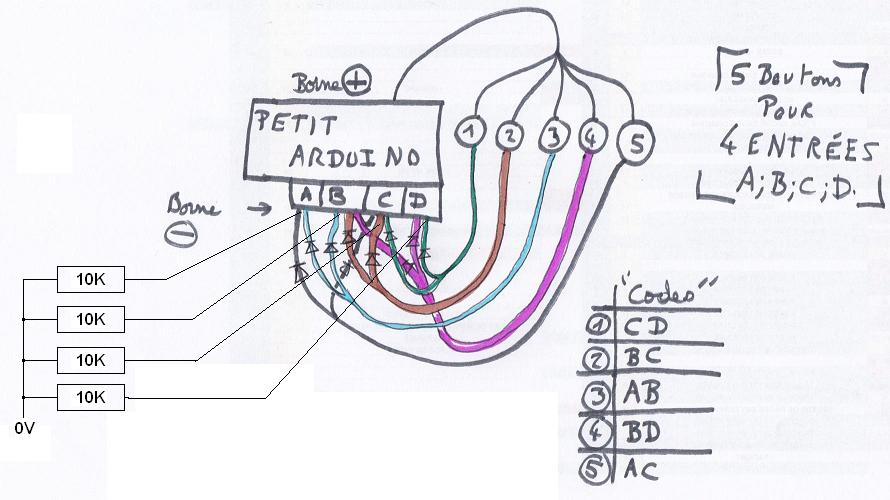 Borne +
PETIT
ARDUINO
A B C D
Borne
-
1 2 3 4 5
5 Boutons
POUR
4 ENTRÉES
A; B; C; D.
10K
10K
10K
10K
0V
"Codes"
1 CD
2 BC
3 AB
4 BD
5 AC